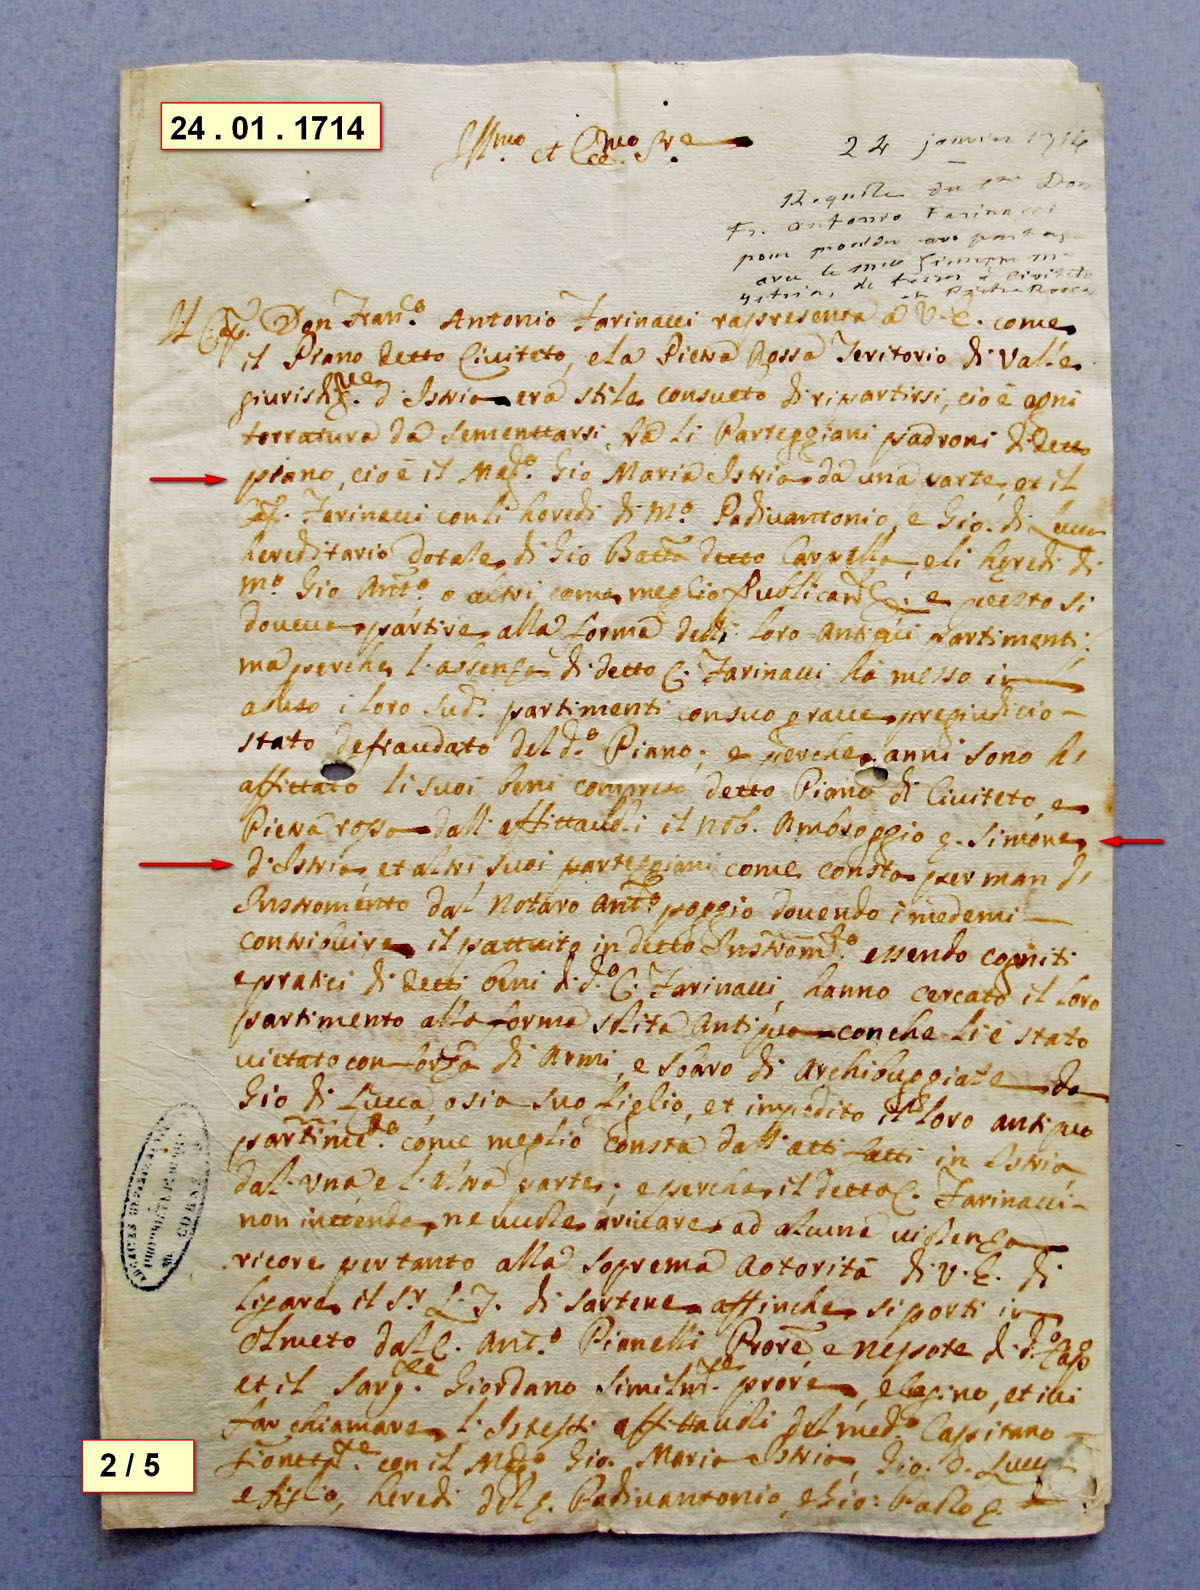 24 . 01 . 1714
Ill.mo et Ecc.mo Sr.e
24 janvier 1714
Requête du Don
Fr. Antonio Farinacci
pour procéder aux partage
avec le
Pietra Rossa
Il Cap. Don Fran.co Antonio Farinacci rapresenta à V. E. come
il Piano detto Civiteto, e la Pietra Rossa Teritorio di Valle
giurisd.ne d'Istria era stile consueto di ripartirsi, cioè ogni
terratura da sementtarsi, fà li Parteggiani padroni di detto
piano, cioè il Mag.co Gio Maria Istria da una parte, et il
C. Farinacci con li heredi di M.o Padivantonio, e Gio. di Lucca
hereditario dotale, di Gio Batta detto e li heredi di
M.o Gio Ant.o o altri come meglio e questo si
doveva partire alla forma delli loro antiqui partimenti;
ma perche l'assenza di detto C. Farinacci hà messo in
abuso i loro sud.i partimenti con suo grave pregiudicio
stato defraudato del d.o Piano; e perche anni sono hà
affittato li suoi beni compreso detto Piano di Civiteto, e
Pietra rossa dall' affittavoli il Nob. Ambroggio q. Simone
d'Istria, et altri suoi parteggiani come consta per man di
Instromento dal Notaro Ant.o poggio dovendo i medemi
contribuire il pattuito in detto Instrom.to essendo cogniti
e pratici di detti beni di d.o C. Farinacci, hanno cercato il loro
partimento alla forma solita antiqua con che li è stato
vietato con forza di Armi, e sbaro di Archibuggiate da
Gio di Lucca, o sia suo figlio, et impedito il loro antiquo
partim.to come meglio consta dall' atti fatti in Istria
dal' una e l'altra parte; e perche il detto C. Farinacci
non intende, ne vuole arivare ad alcuna violenza
ricore per tanto alla soprema Autorità di V. E. di
ligare il Sr. L. T. di Sartene affinche si porti in
Olmeto dal C. Ant.o Pianelli Prore, e nepote di d.o Cap.o
et il Sarg.te Giordano similm.te prore, e ivi
far chiamare l'Istessi affittavoli del med.o Capitano
con il Mag.co Gio. Maria Istria, Gio. d. Lucca
e figlio, heredi del q. Padivantonio, e Gio: Paolo q.
ARCHIVES DÉPARTEMENTALES
PROPRIÉTÉ PUBLIQUE
CORSE
2 / 5